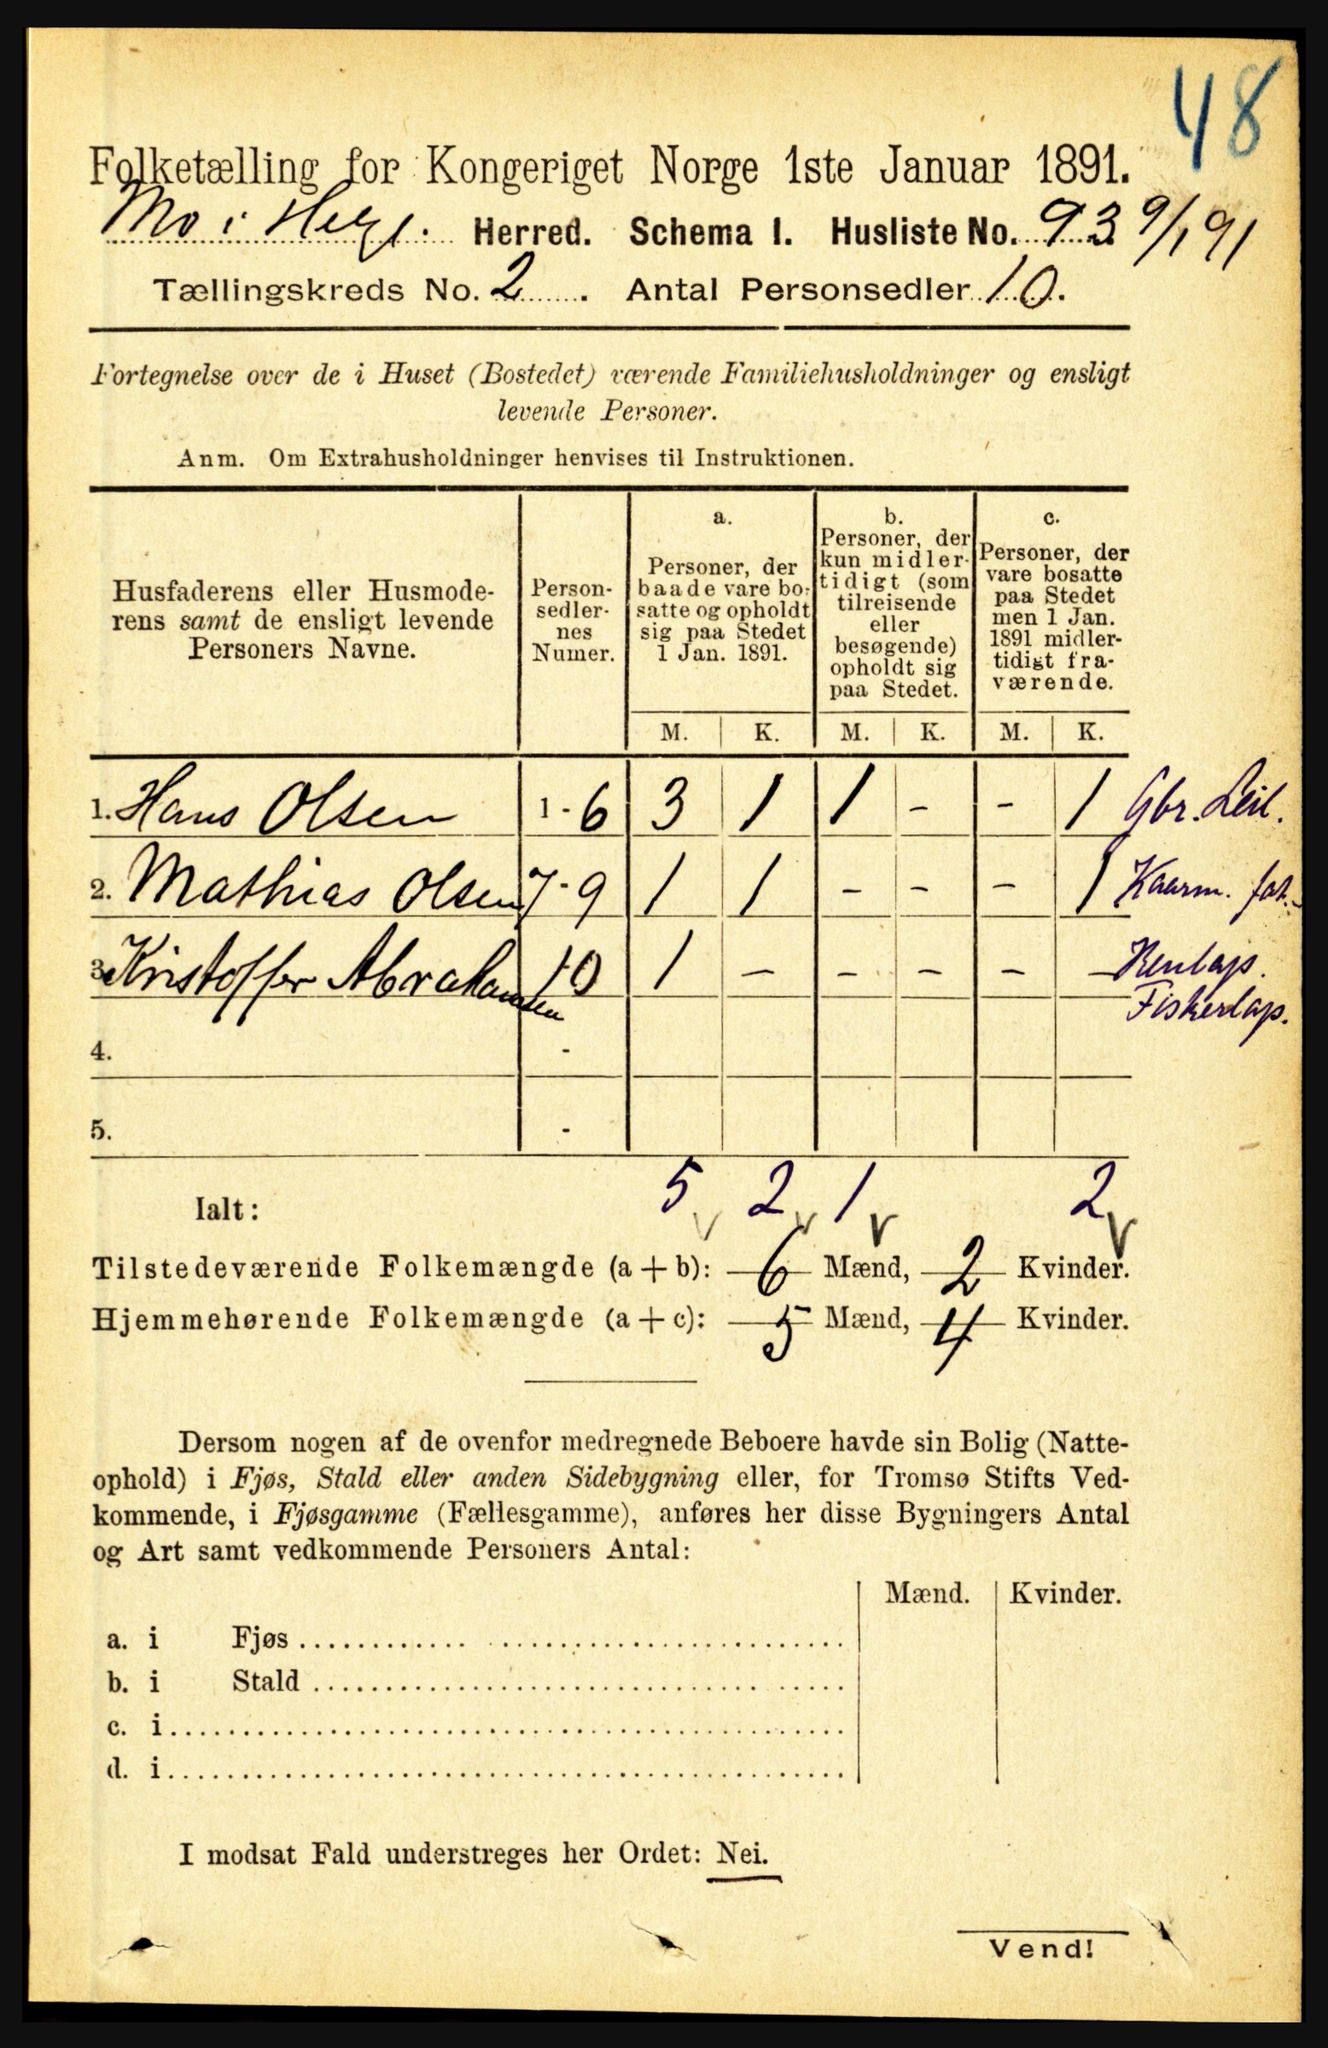 48
Folketælling for Kongeriget Norge 1ste Januar 1891.
Mo i Helgl. Herred. Schema I. Husliste No. 93 9/1 91
Tællingskreds No. 2. Antal Personsedler 10.
Fortegnelse over de i Huset (Bostedet) værende Familiehusholdninger og ensligt
levende Personer.
Anm. Om Extrahusholdninger henvises til Instruktionen.
Husfaderens eller Husmode-
rens samt de ensligt levende
Personers Navne.
Person-
sedler-
nes
Numer.
a.
Personer, der
baade vare bo-
satte og opholdt
sig paa Stedet
1 Jan. 1891.
b.
Personer, der
kun midler-
tidigt (som
tilreisende
eller
besøgende)
opholdt sig
paa Stedet.
c.
Personer, der
vare bosatte
paa Stedet
men 1 Jan.
1891 midler-
tidigt fra-
værende.
M. K. M. K. M. K.
1. Hans Olsen 1-6 3 1 1 - - 1 Gbr. Leil.
2. Mathias Olsen 7-9 1 1 - - - 1 Kaarm. fat.
3. Kristoffer Abrahamsen 10 1 - - - - - Renlap.
Fiskerlap.
4. -
5. -
Ialt: 5 2 1 2
Tilstedeværende Folkemængde (a + b): 6 Mænd, 2 Kvinder.
Hjemmehørende Folkemængde (a + c): 5 Mænd, 4 Kvinder.
Dersom nogen af de ovenfor medregnede Beboere havde sin Bolig (Natte-
ophold) i Fjøs, Stald eller anden Sidebygning eller, for Tromsø Stifts Ved-
kommende, i Fjøsgamme (Fællesgamme), anføres her disse Bygningers Antal
og Art samt vedkommende Personers Antal:
Mænd. Kvinder.
a. i Fjøs
b. i Stald
c. i
d. i
I modsat Fald understreges her Ordet: Nei.
Vend!